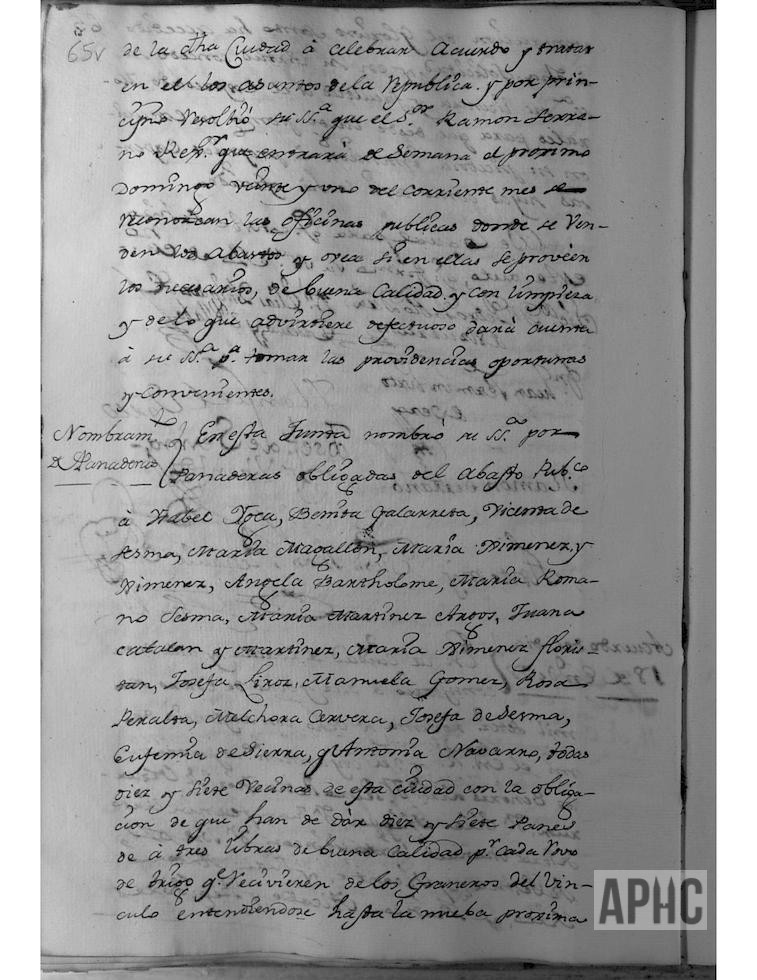 65v
de la dha Ciudad à celebrar Acuerdo y tratar
en el los asuntos de la Republica. y por prin-
cipio resolbió su SS.ª que el S.or Ramon Serra-
no Rex.or que entrará de Semana el proximo
Domingo veinte y uno del corriente mes se
reconozcan las oficinas publicas donde se ven-
den los Abastos y vea si en ellas se proveen
los necesarios, de buena Calidad y con limpieza
y de lo que advirtiere defectuoso dará cuenta
à su SS.ª p.ª tomar las providencias oportunas
y convenientes.
Nombram.to
de Panaderas
En esta Junta nombró su SS.ª por
Panaderas obligadas del Abasto Pub.co
à Ysabel Roca, Benita Galarreta, Vicenta de
Sesma, Maria Magallon, Maria Ximenez y
Ximenez, Angela Bartholome, Maria Roma-
no Sesma, Maria Martinez Argos, Juana
Catalan y Martinez, Maria Ximenez Floris-
tan, Josefa Liroz, Manuela Gomez, Rosa
Peralta, Melchora Cervera, Josefa de Sesma,
Eufemia de Sierra, y Antonia Navarro, todas
diez y siete Vecinas de esta ciudad con la obliga-
cion de que han de dàr diez y siete Panes
de à tres libras de buena Calidad p.r cada Rovo
de trigo q.e recivieren de los Graneros del Vin-
culo entendiendose hasta la nueba proxima
APHC